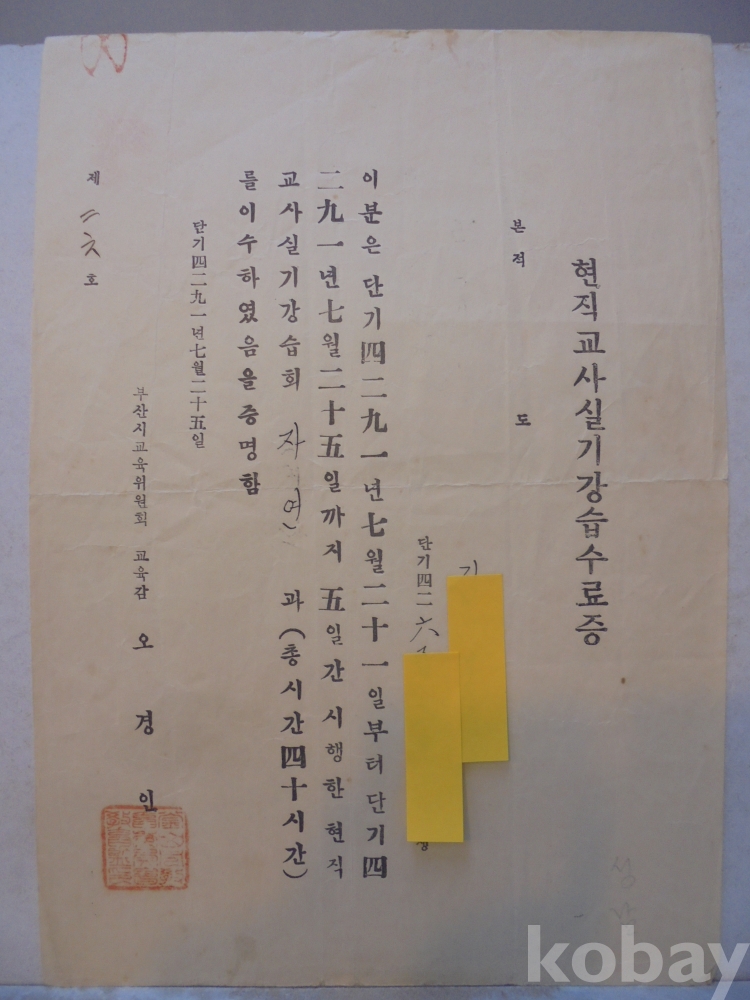 현직교사실기강습수료증
본적 도
단기四二六
이분은 단기四二九一년七월二十一일부터 단기四
二九一년七월二十五일까지 五일간 시행한 현직
교사실기강습회 자연 과(총시간四十시간)
를 이수하였음을 증명함
단기四二九一년七월二十五일
부산시교육위원회 교육감 오경인
제 호
kobay